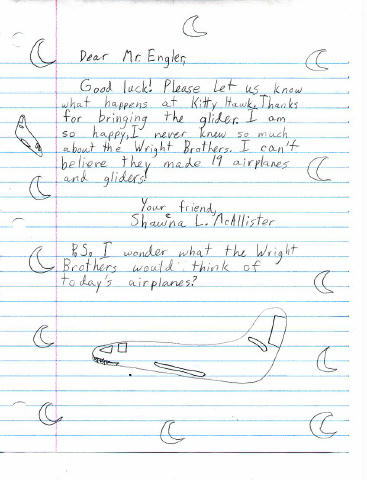 Dear Mr. Engler,
Good luck! Please let us know
what happens at Kitty Hawk. Thanks
for bringing the glider. I am
so happy, I never knew so much
about the Wright Brothers. I can't
believe they made 19 airplanes
and gliders!
Your friend,
Shawna L. McAllister
P.S. I wonder what the Wright
Brothers would think of
today's airplanes?